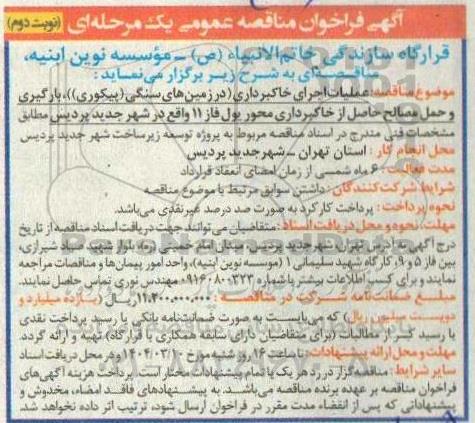 آگهی فراخوان مناقصه عمومی یک مرحله‌ای (نوبت دوم)
قرارگاه سازندگی خاتم‌الانبیاء (ص) ـ مؤسسه نوین ابنیه،
مناقصه‌ای به شرح زیر برگزار می‌نماید:
موضوع مناقصه: عملیات اجرای خاکبرداری (در زمین‌های سنگی (پیکوری))، بارگیری
و حمل مصالح حاصل از خاکبرداری محور پول فاز ۱۱ واقع در شهر جدید پردیس مطابق
مشخصات فنی مندرج در اسناد مناقصه مربوط به پروژه توسعه زیرساخت شهر جدید پردیس
محل انجام کار: استان تهران ـ شهر جدید پردیس
مدت فعالیت: ۶ ماه شمسی از زمان امضای انعقاد قرارداد
شرایط شرکت‌کنندگان: داشتن سوابق مرتبط با موضوع مناقصه
نحوه پرداخت: پرداخت کارکرد به صورت صد درصد غیرنقدی می‌باشد.
مهلت، نحوه و محل دریافت اسناد: متقاضیان می‌توانند جهت دریافت اسناد مناقصه از تاریخ
درج آگهی به آدرس تهران، شهر جدید پردیس، میدان امام خمینی (ره)، بلوار شهید صیاد شیرازی،
بین فاز ۵ و ۹، کارگاه شهید سلیمانی ۱ (موسسه نوین ابنیه)، واحد امور پیمان‌ها و مناقصات مراجعه
نمایند و برای کسب اطلاعات بیشتر با شماره ۰۹۱۶۰۸۰۰۳۲۳ مهندس نوری تماس حاصل نمایند.
مبلغ ضمانتنامه شرکت در مناقصه: ۱۱،۲۰۰،۰۰۰،۰۰۰ ریال (یازده میلیارد و
دویست میلیون ریال) که می‌بایست به صورت ضمانتنامه بانکی یا رسید پرداخت نقدی
یا رسید کسر از مطالبات (برای متقاضیان دارای سابقه همکاری با قرارگاه) تهیه و ارائه گردد.
مهلت و محل ارائه پیشنهادات: تا ساعت ۱۶ روز شنبه مورخ ۱۴۰۴/۰۳/۱۰ و در محل دریافت اسناد
سایر شرایط: مناقصه‌گزار در رد هر یک یا تمام پیشنهادات مختار است. پرداخت هزینه آگهی‌های
فراخوان مناقصه بر عهده برنده مناقصه می‌باشد. به پیشنهادهای فاقد امضاء، مخدوش و
پیشنهاداتی که پس از انقضاء مدت مقرر در فراخوان ارسال شود، ترتیب اثر داده نخواهد شد.